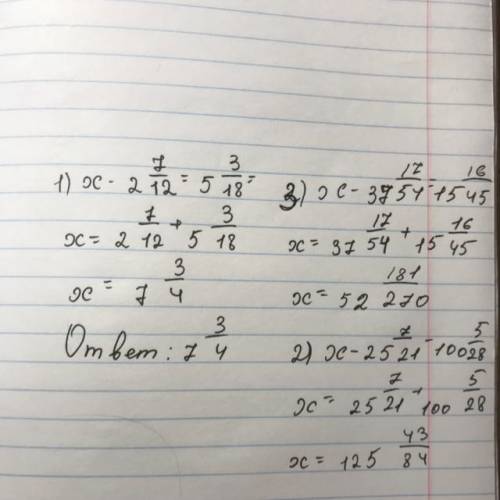 1) x - 2 7/12 = 5 3/18 =
x = 2 7/12 + 5 3/18
x = 7 3/4
Ответ: 7 3/4
3) x - 37 17/54 = 15 16/45
x = 37 17/54 + 15 16/45
x = 52 181/270
2) x - 25 7/21 = 100 5/28
x = 25 7/21 + 100 5/28
x = 125 43/84